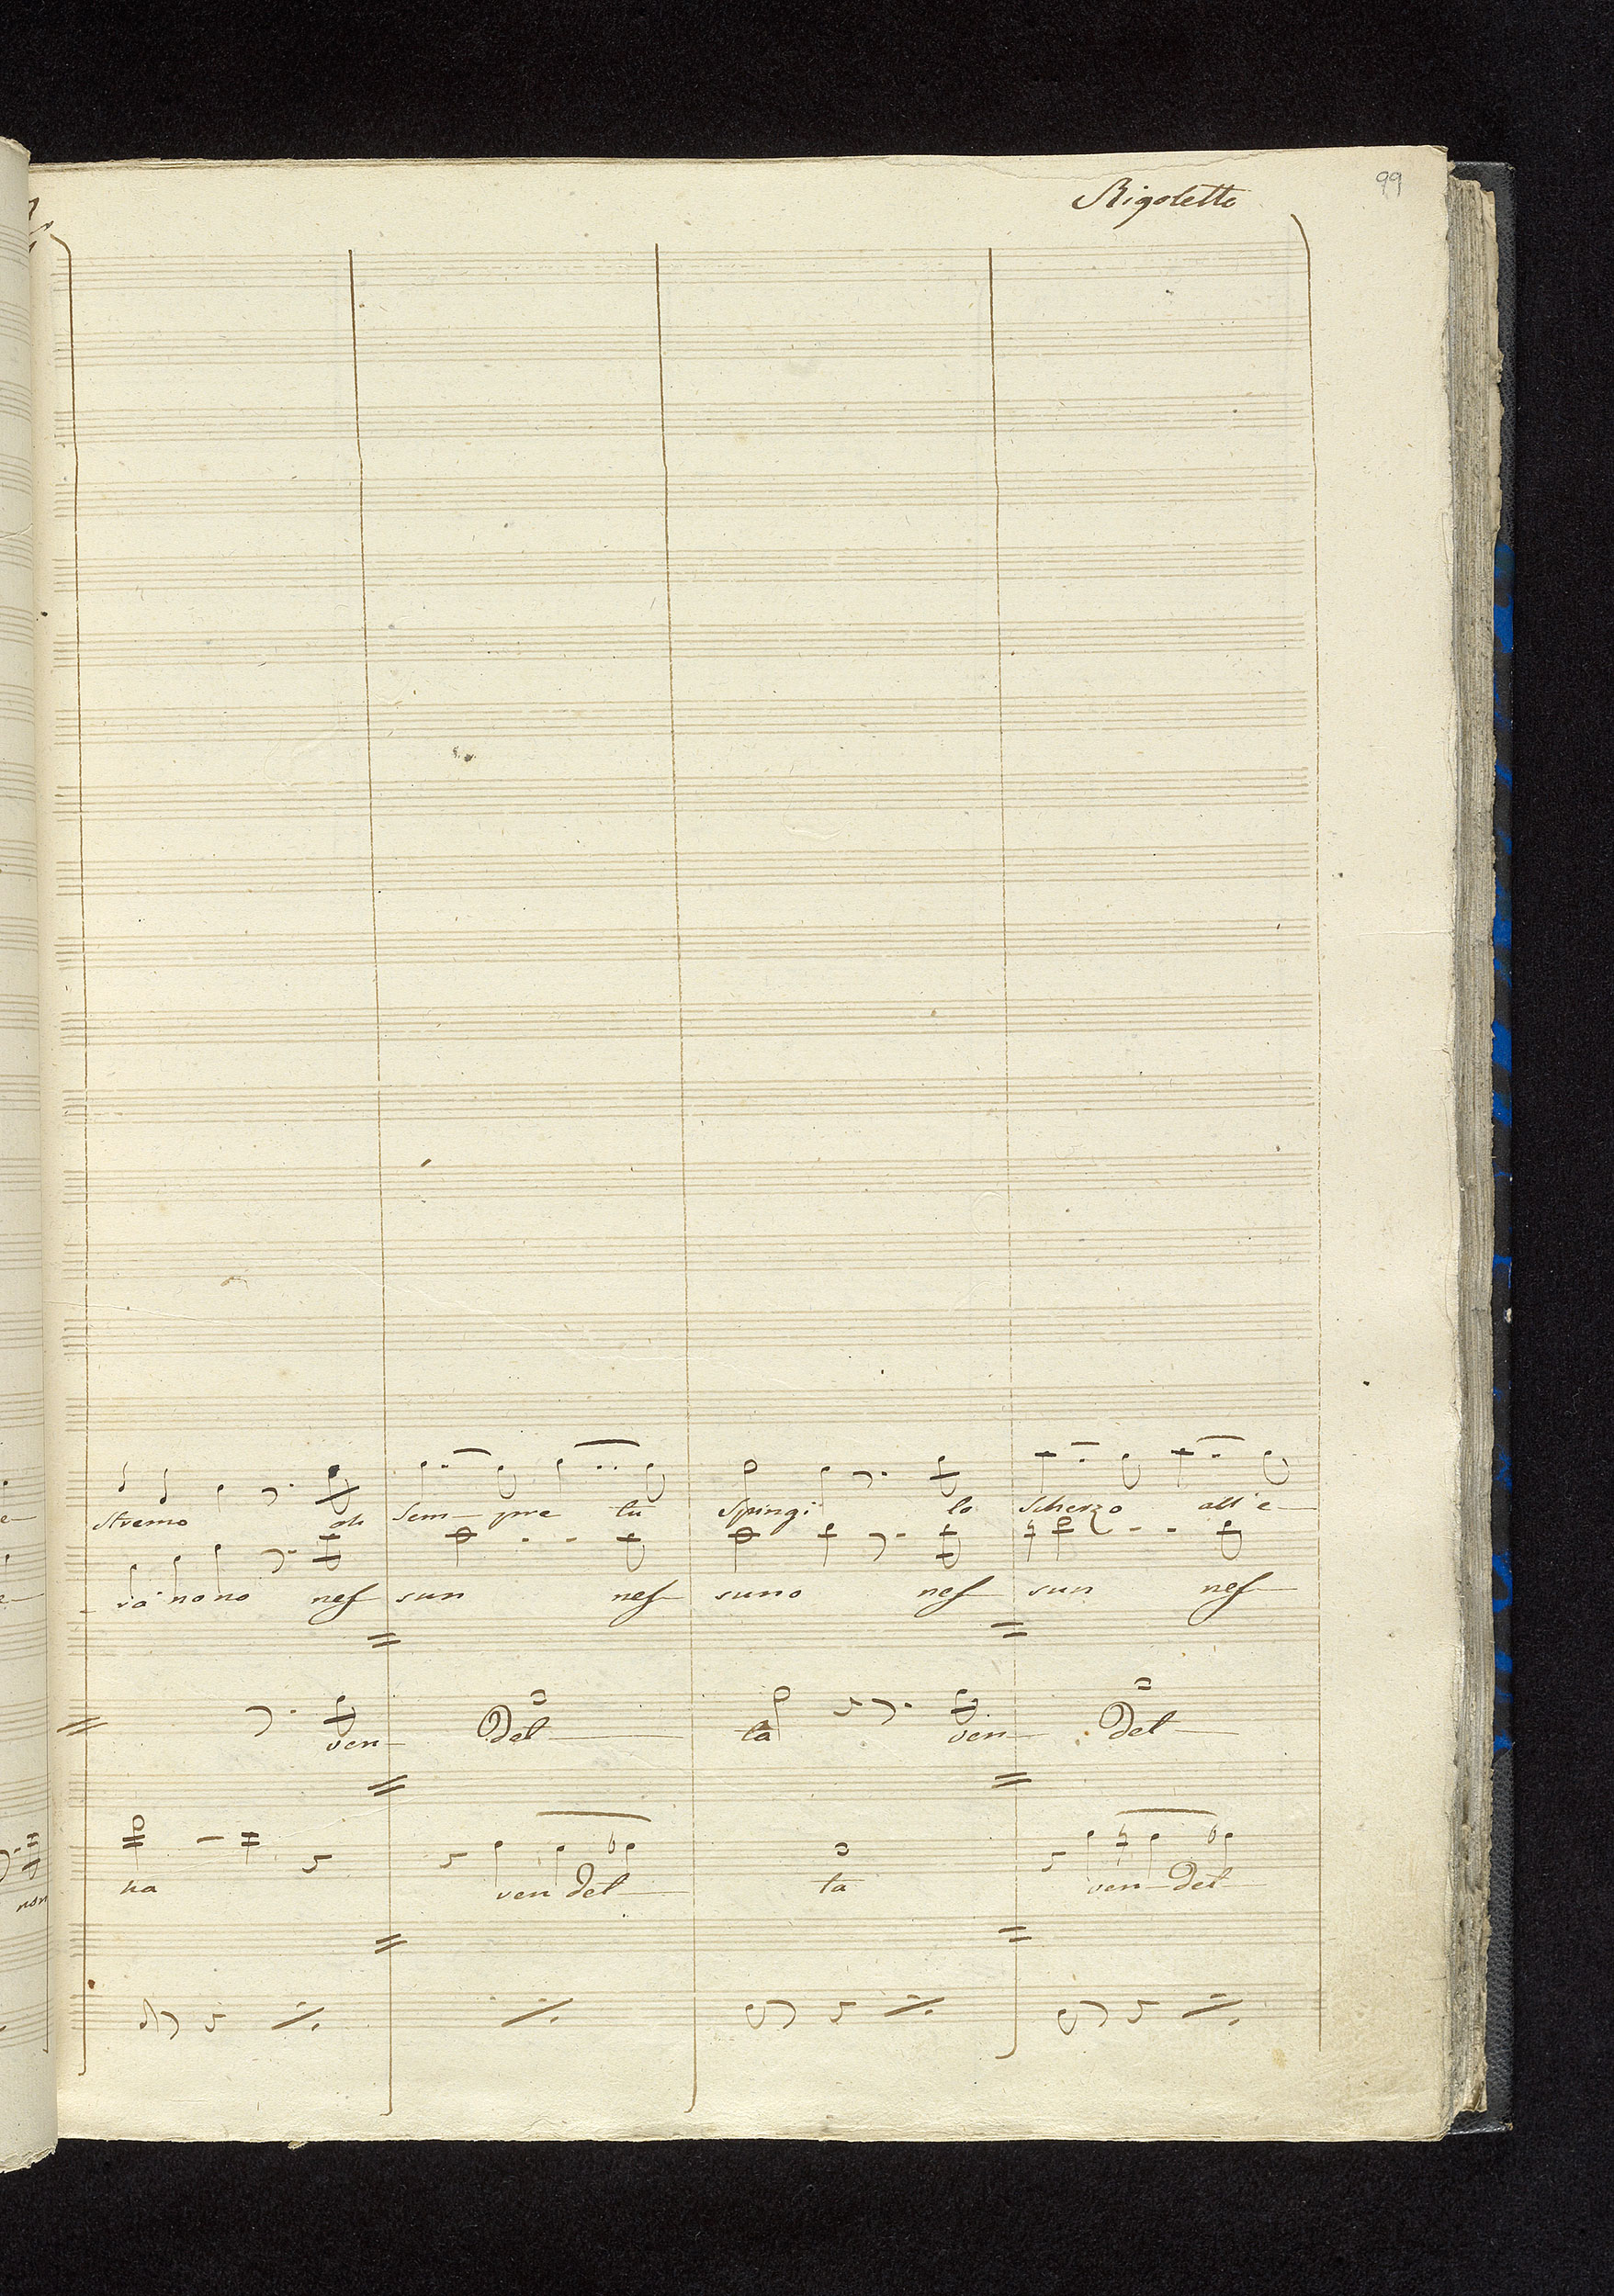 Rigoletto
99
stremo ah sem- pre tu spingi lo scherzo all'e-
va' no no nes- sun nes- suno nes- sun nes-
ven- det ta ven- det
non
na ven det ta ven- det